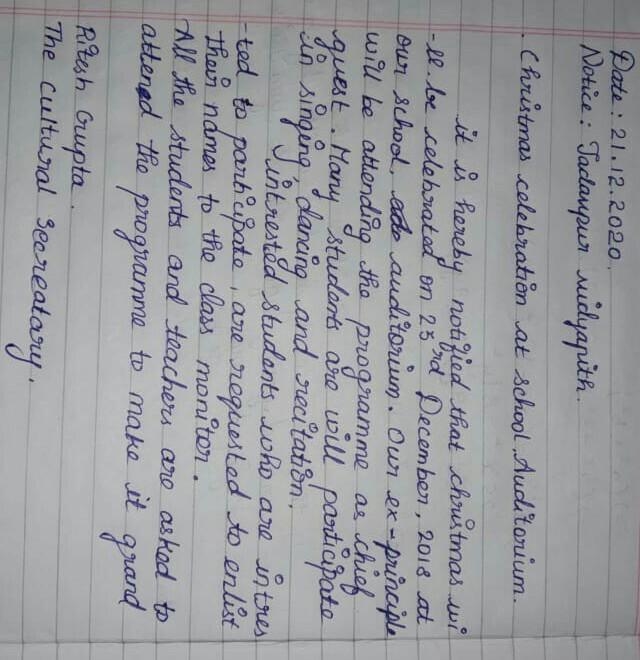 Date: 21.12.2020.
Notice: Jadavpur vidyapith.
. Christmas celebration at school Auditorium.
it is hereby notified that christmas wi
-ll. be celebrated on 23rd December, 2018 at
our school, auditorium. Our ex-principle
will be attending the programme as chief
guest. Many students are will participate
in singing, dancing and recitation.
interested students who are intres
-ted to participate, are requested to enlist
their names to the class monitor.
All the students and teachers are asked to
attened the programme to make it grand
Ritesh Gupta.
The cultural secreatary.